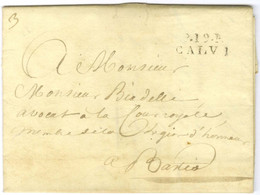 3
P.19.P
CALVI
A Monsieur
Monsieur Biadelli
avocat à la Cour royale,
membre de la Legion d'honneur
à Bastia